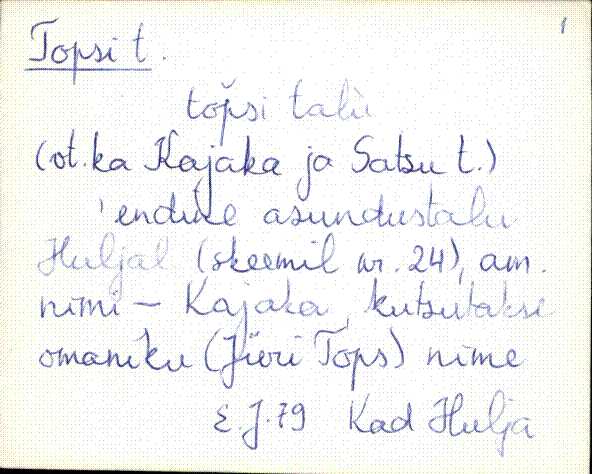 1
Topsi t.
top̆si talù
(vt. ka Kajaka ja Satsu t.)
endine asundustalu
Huljal (skeemil nr. 24), am.
nimi – Kajaka, kutsutakse
omaniku (Jüri Tops) nime
E. J. 79 Kad Hulja